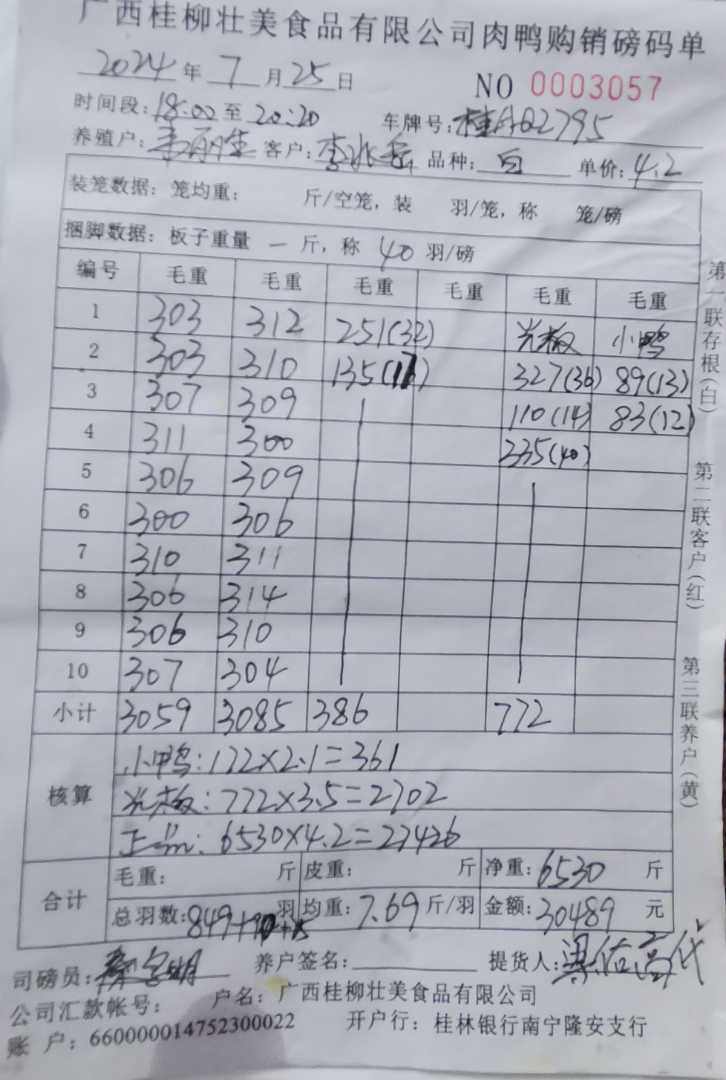 广西桂柳壮美食品有限公司肉鸭购销磅码单
2024年7月25日 NO 0003057
时间段:18:00至20:20 车牌号:桂AQ2795
养殖户: 客户:李 品种:白 单价:4.2
装笼数据:笼均重: 斤/空笼,装 羽/笼,称 笼/磅
捆脚数据:板子重量 一 斤,称 40 羽/磅
编号 毛重 毛重 毛重 毛重 毛重 毛重
1 303 312 251(32) 光板 小鸭
2 303 310 135(17) 327(36) 89(13)
3 307 309 110(14) 83(12)
4 311 300 335(40)
5 306 309
6 300 306
7 310 311
8 306 314
9 306 310
10 307 304
小计 3059 3085 386 772
核算 小鸭:172×2.1=361
光板:772×3.5=2702
正品:6530×4.2=27426
合计 毛重: 斤 皮重: 斤 净重:6530 斤
总羽数:849 羽 均重:7.69斤/羽 金额:30489 元
司磅员: 养户签名: 提货人:
公司汇款帐号: 户名:广西桂柳壮美食品有限公司
账 户:660000014752300022 开户行:桂林银行南宁隆安支行
第一联存根(白)
第二联客户(红)
第三联养户(黄)